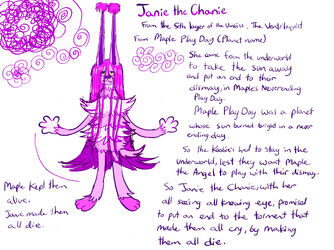 Janie the Chanie
From the 5th layer of the Unvies, The Ventriloquist
From Maple Play Day (Planet name)
She came from the underworld
to take the sun away
and put an end to their
dismay, in Maple's Neverending
Play Day.
Maple Play Day was a planet
whose sun burned bright in a never
ending day.
So the had to stay in the
underworld, lest they want Maple
the Angel to play with their dismay.
So Janie the Chanie, with her
all seeing all knowing eye, promised
to put an end to the torment that
made them all cry, by making
them all die.
Maple Kept them
alive.
Janie made them
all die.